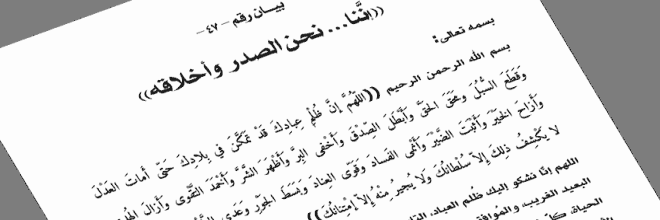 بيــان رقم -٤٧-
((إنَّنا... نحن الصدر وأخلاقه))
بسمه تعالى:
بسم الله الرحمن الرحيم ((اللَّهُمَّ إنَّ ظُلْمَ عِبادِكَ قَدْ تَمَكَّنَ فِي بِلادِكَ حَتّىٰ أَماتَ العَدْلَ
وَقَطَعَ السُّبُلَ وَمَحَقَ الحَقَّ وَأَبْطَلَ الصِّدْقَ وَأَخْفى البِرَّ وَأَظْهَرَ الشَّرَّ وَأَخْمَدَ التَّقْوى وَأَزالَ
وَأَزاحَ الخَيْرَ وَأَثْبَتَ الضَّيْرَ وَأَنْمى الفَسادَ وَقَوّى العِنادَ وَبَسَطَ الجَوْرَ وَعَدى
لا يَكْشِفُ ذلِكَ إلاّ سُلْطانُكَ وَلا يُجيرُ مِنْهُ إلاّ إمْتِنانُكَ))
اللهم إنّا نشكو إليك ظلم العباد
البعيد الغريب
الحياة